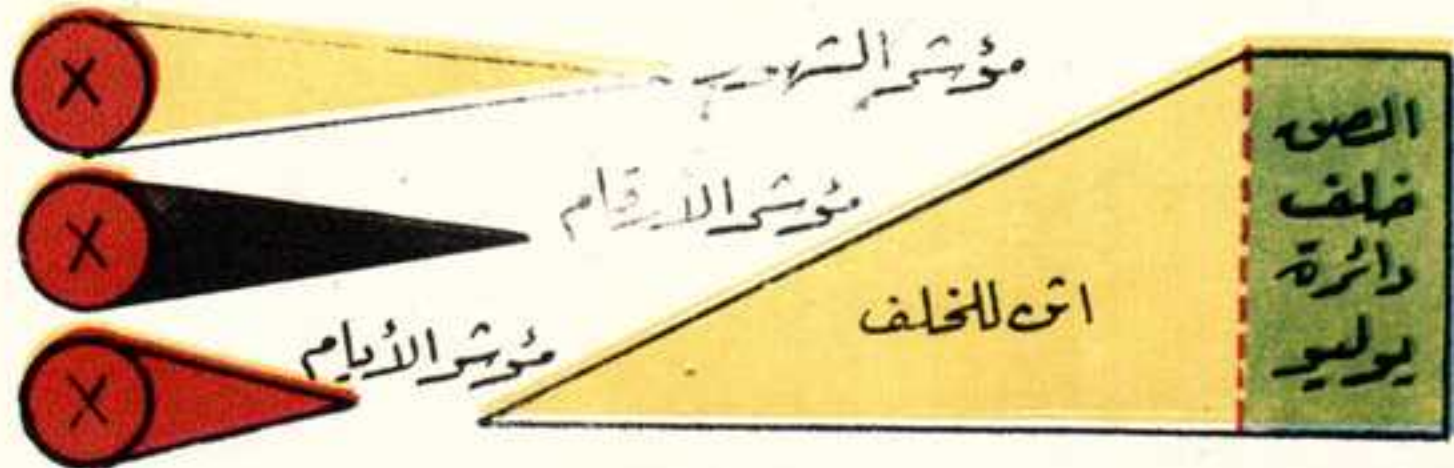 مؤشر الشهور
مؤشر الأرقام
مؤشر الأيام
اثن للخلف
الصق
خلف
دائرة
يوليو
X
X
X